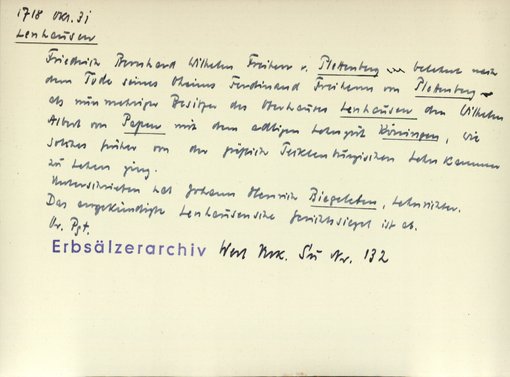 1718 Okt. 31
Lenhausen
Friedrich Bernhard Wilhelm Freiherr v. Plettenberg belehnt nach
dem Tode seines Oheims Ferdinand Freiherrn von Plettenberg
als nunmehriger Besitzer des Oberhauses Lenhausen den Wilhelm
Albert von Papen mit dem adligen Lehngut Köningen, wie
solches früher von der gräflich Tecklenburgischen Lehnkammer
zu Lehen ging.
Unterschrieben hat Johann Henrich Biegeleben, Lehnrichter.
Das angekündigte Lenhausensche Gerichtssiegel ist ab.
Or. Pgt.
Erbsälzerarchiv Werl Urk. Nr. 132